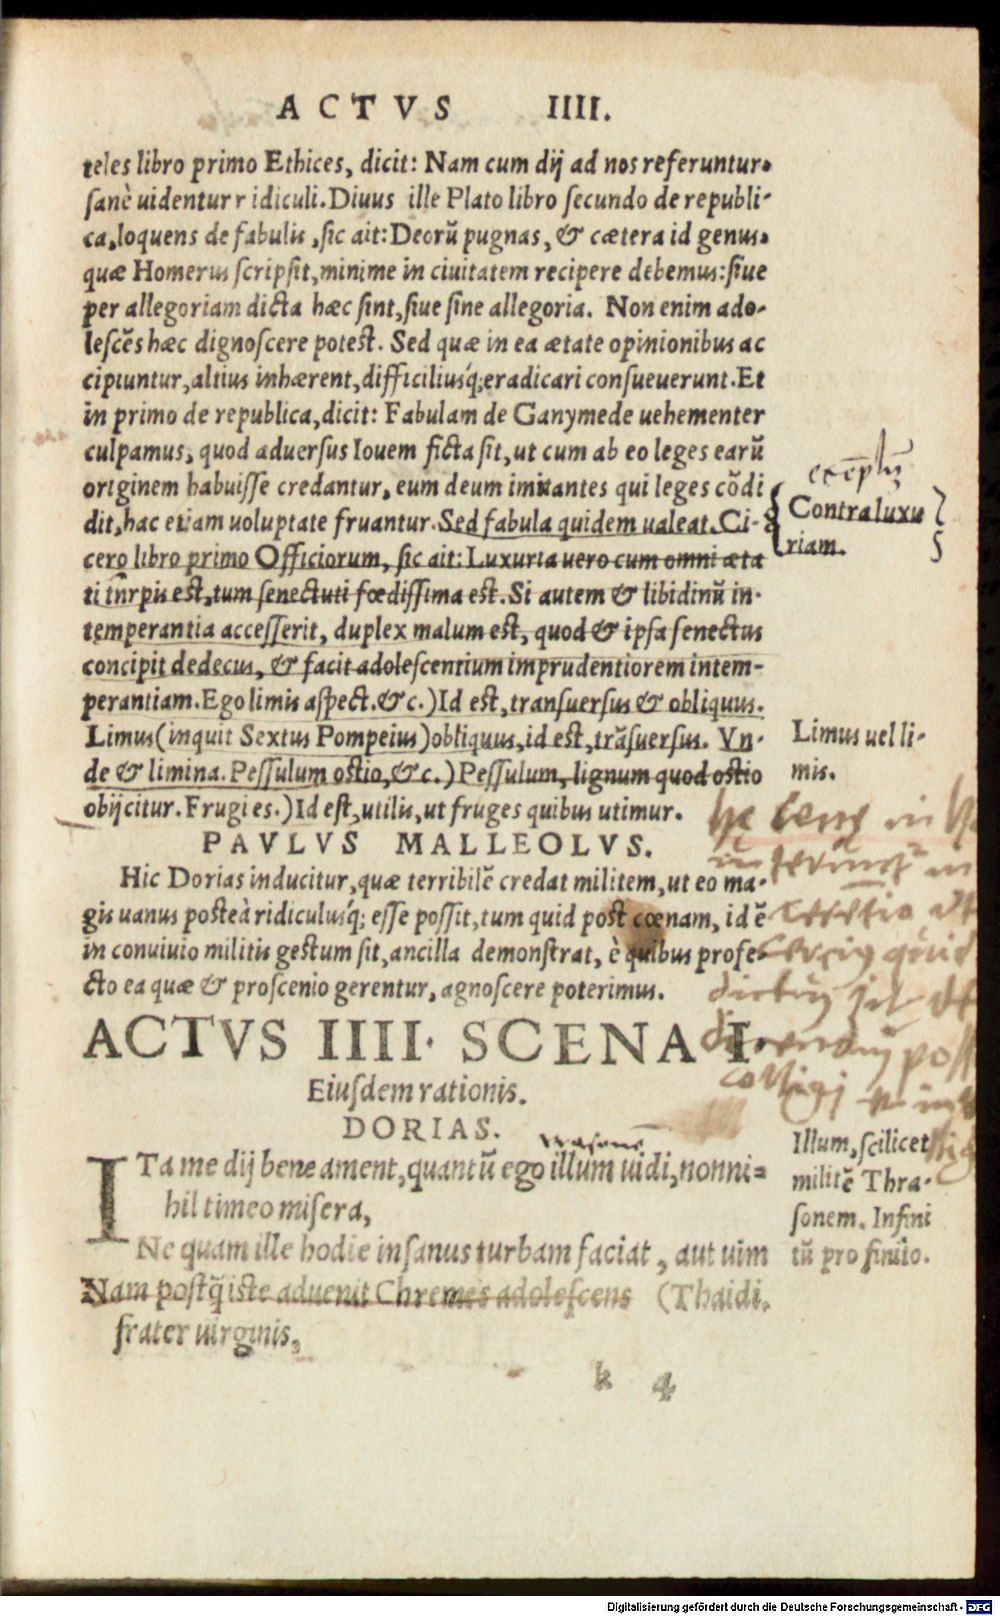 ACTVS IIII.
teles libro primo Ethices, dicit: Nam cum dij ad nos referuntur,
ſanè uidentur r idiculi. Diuus ille Plato libro ſecundo de republi-
ca, loquens de fabulis, ſic ait: Deorũ pugnas, & cætera id genus,
quæ Homerus ſcripſit, minime in ciuitatem recipere debemus: ſiue
per allegoriam dicta hæc ſint, ſiue ſine allegoria. Non enim ado-
leſcẽs hæc dignoſcere poteſt. Sed quæ in ea ætate opinionibus ac
cipiuntur, altius inhærent, difficiliusq́; eradicari conſueuerunt. Et
in primo de republica, dicit: Fabulam de Ganymede uehementer
culpamus, quod aduerſus Iouem ficta ſit, ut cum ab eo leges earũ
originem habuiſſe credantur, eum deum imitantes qui leges cõdi
dit, hac etiam uoluptate fruantur. Sed fabula quidem ualeat. Ci-
cero libro primo Officiorum, ſic ait: Luxuria uero cum omni æta
ti turpis eſt, tum ſenectuti fœdiſſima eſt. Si autem & libidinũ in-
temperantia acceſſerit, duplex malum eſt, quod & ipſa ſenectus
concipit dedecus, & facit adoleſcentium imprudentiorem intem-
perantiam. Ego limis aſpect. &c.) Id eſt, tranſuerſus & obliquus.
Limus (inquit Sextus Pompeius) obliquus, id eſt, trãſuerſus. Vn-
de & limina. Peſſulum oſtio, &c.) Peſſulum, lignum quod oſtio
obijcitur. Frugi es.) Id eſt, utilis, ut fruges quibus utimur.
Contra luxu
riam.
Limus uel li-
mis.
PAVLVS MALLEOLVS.
Hic Dorias inducitur, quæ terribilẽ credat militem, ut eo ma-
gis uanus poſteà ridiculusq́; eſſe poſſit, tum quid poſt cœnam, id ẽ
in conuiuio militis geſtum ſit, ancilla demonſtrat, è quibus profe-
cto ea quæ & proſcenio gerentur, agnoſcere poterimus.
ACTVS IIII. SCENA I.
Eiuſdem rationis.
DORIAS.
ITa me dij bene ament, quantũ ego illum uidi, nonni=
hil timeo miſera,
Ne quam ille hodie inſanus turbam faciat, aut uim
Nam poſtq̃ iſte aduenit Chremes adoleſcens (Thaidi.
frater uirginis,
Illum, ſcilicet
militẽ Thra-
ſonem. Infini
tũ pro finito.
k 4
Digitalisierung gefördert durch die Deutsche Forschungsgemeinschaft - DFG